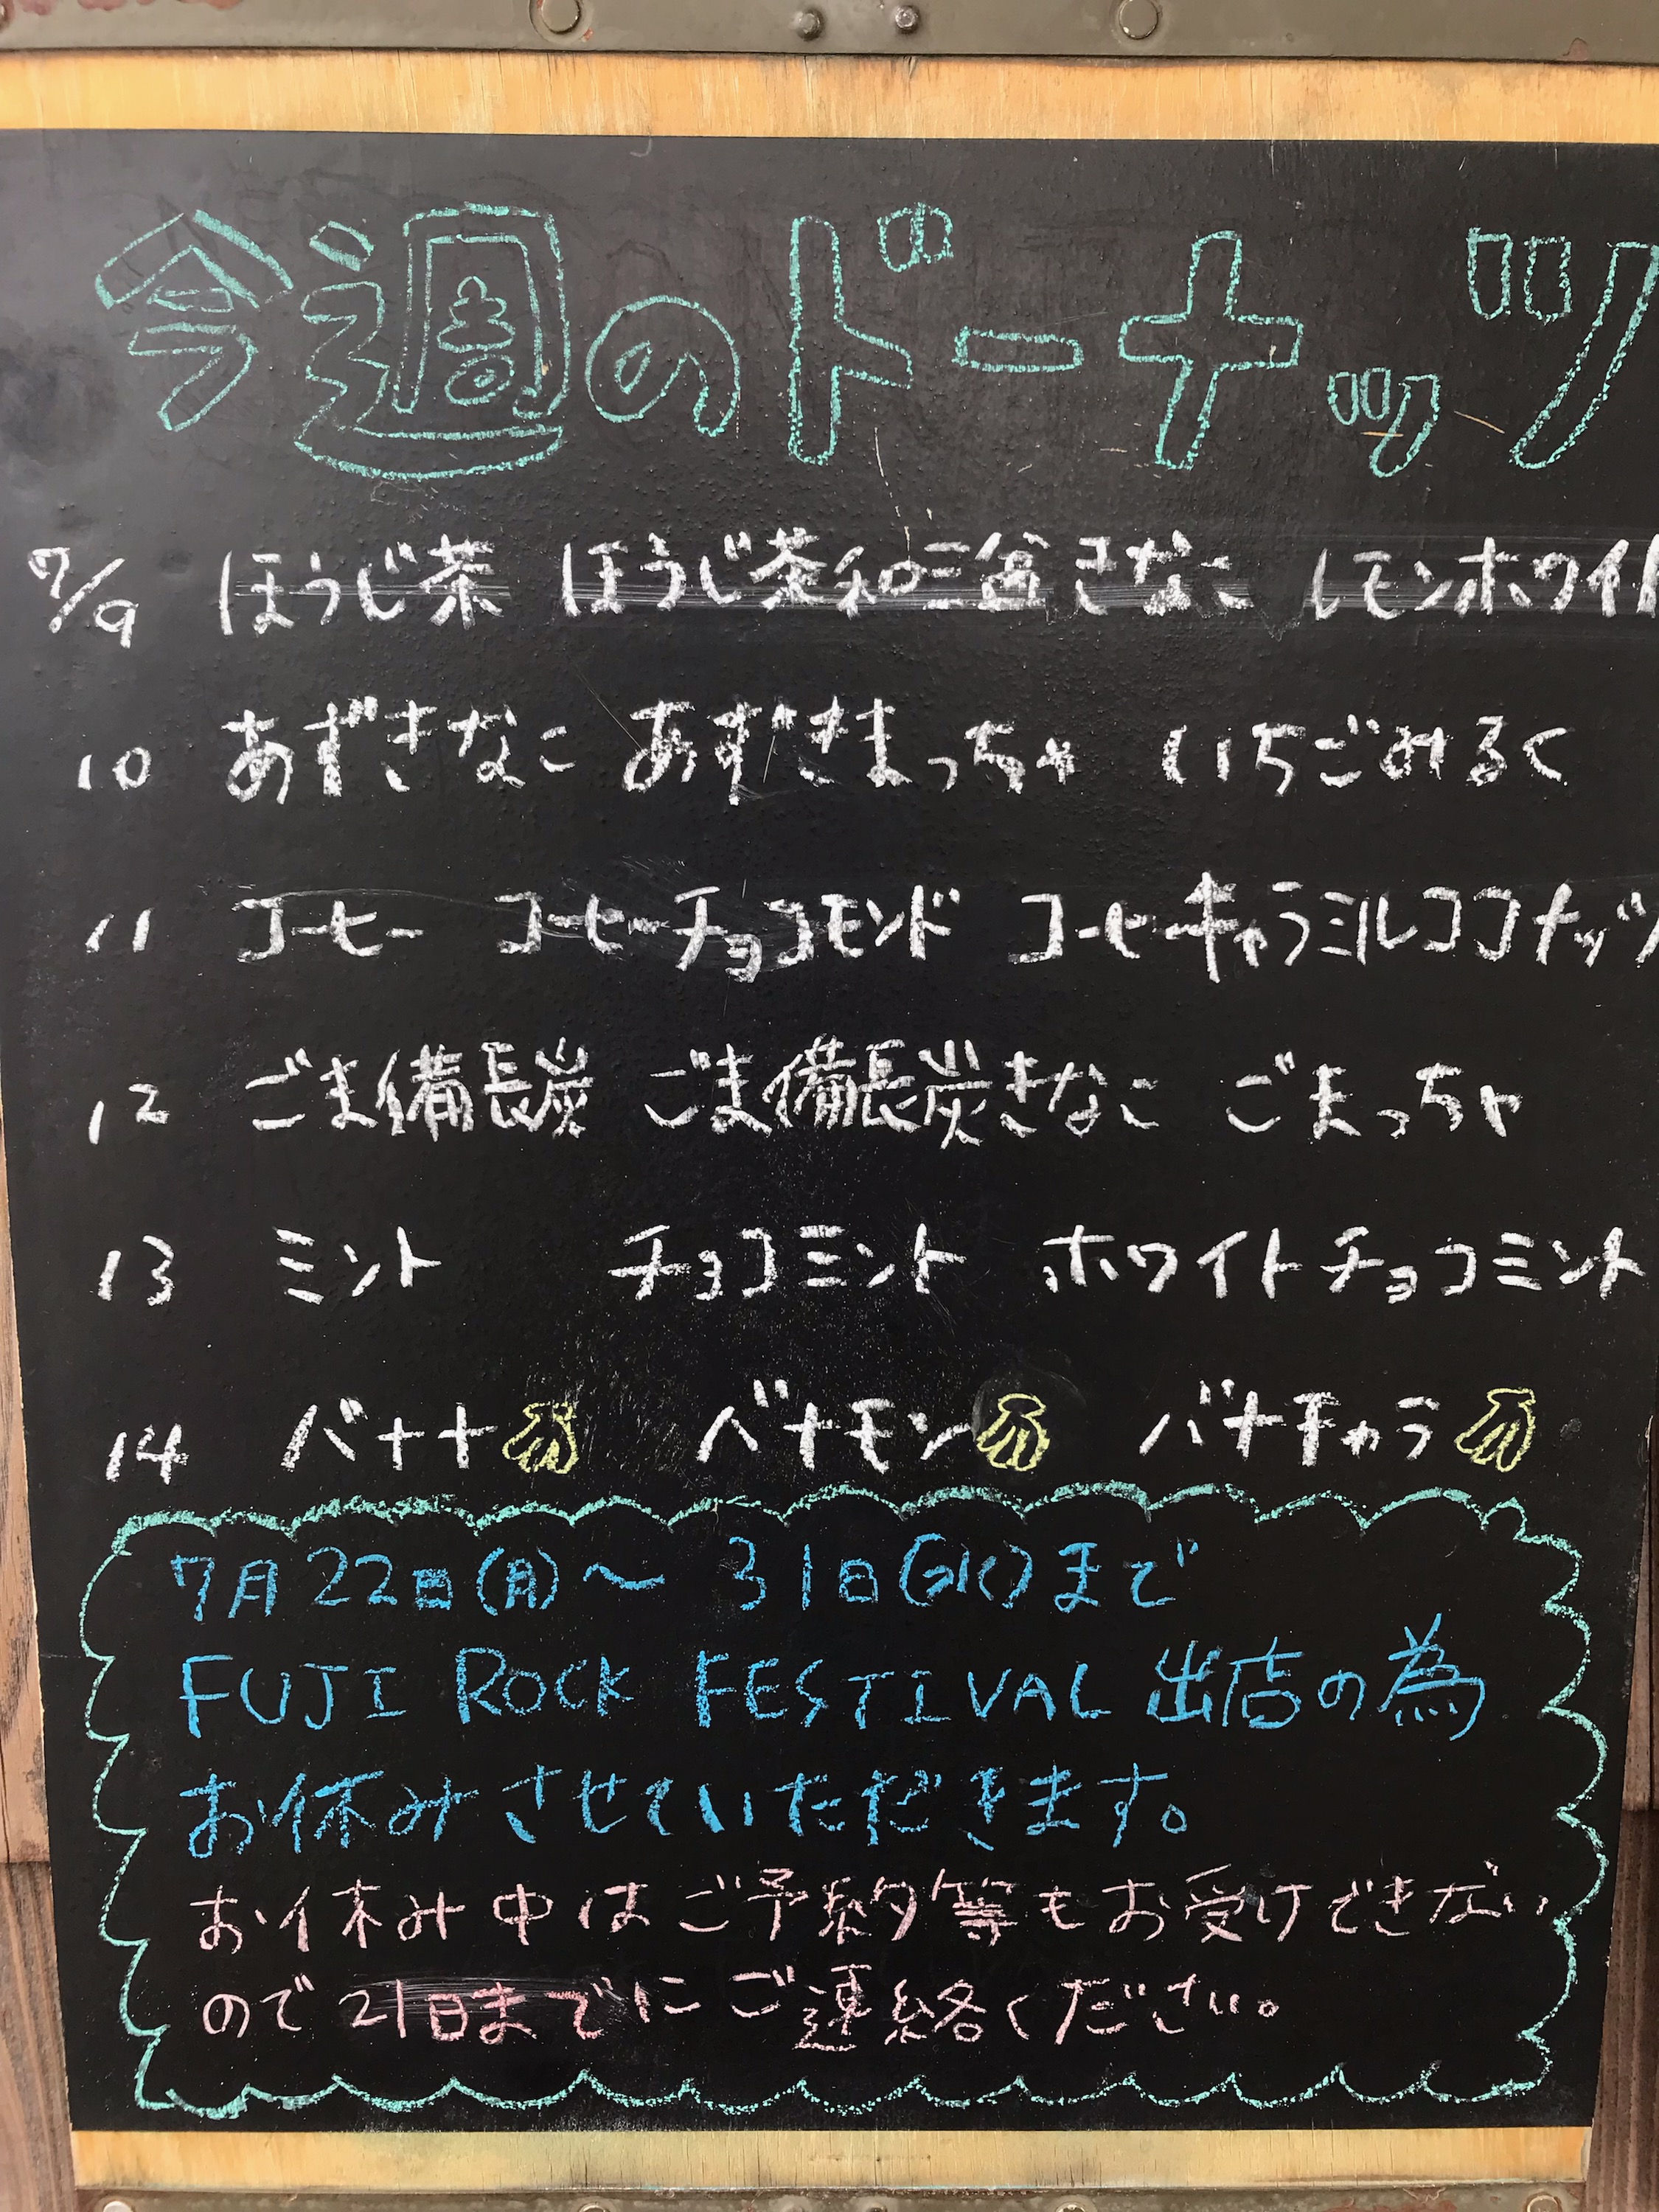 今週のドーナッツ
7/9 ほうじ茶 ほうじ茶和三盆きなこ レモンホワイト
10 あずきなこ あずきまっちゃ いちごみるく
11 コーヒー コーヒーチョコモンド コーヒーキャラミルココナッツ
12 ごま備長炭 ごま備長炭きなこ ごまっちゃ
13 ミント チョコミント ホワイトチョコミント
14 バナナ バナモン バナキャラ
7月22日(月)〜31日(水)まで
FUJI ROCK FESTIVAL 出店の為
お休みさせていただきます。
お休み中はご予約等もお受けできない
ので21日までにご連絡ください。